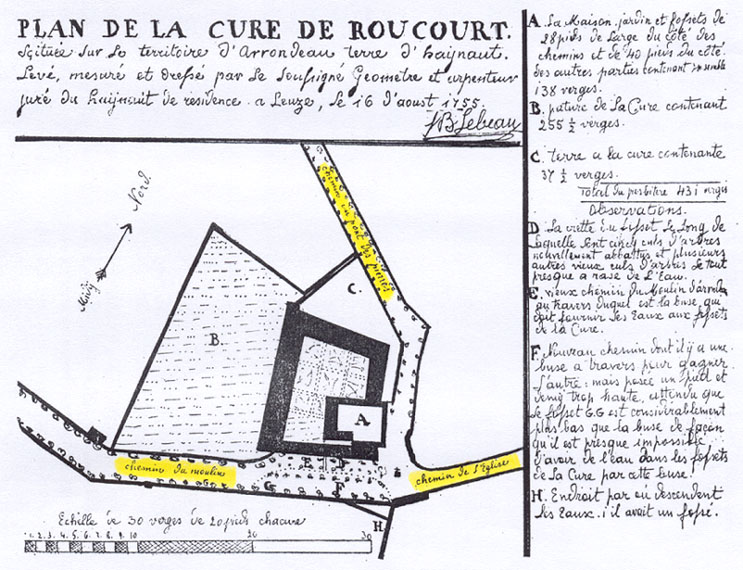 PLAN DE LA CURE DE ROUCOURT.
Scituée sur le territoire d'Arrondeau terre d'haynaut.
Levé, mesuré et dressé par le Soussigné Geometre et arpenteur
juré du haijnuit de residence a Leuze, le 16 d'aoust 1755.
JB Lebeau
Nord
Midij
chemin du pont des
C.
B.
A
chemin du moulin
E D
G F
chemin de l'Eglise
H
Echille de 30 verges de 20 pieds chacune
1 2 3 4 5 6 7 8 9 10 20 30
A. La Maison, jardin et fossets de
28 pieds de Large du côté des
chemins et de 40 pieds du coté
des autres parties contenant ensemble
138 verges.
B. pature de La Cure contenant
255 ½ verges.
C. terre a la cure contenante
37 ½ verges.
Total du presbitere 431 verges
Observations.
D. La du fosset le Long de
Laquelle sont cincq culs d'arbres
nouvellement abbattus et plusieurs
autres vieux culs d'arbres le tout
presque a rase de L'Eau.
E. vieux chemin du Moulin
au travers duquel est la buse, qui
doit fournir les eaux aux fossets
de la Cure.
F. Nouveau chemin dont il ij a une
buse a travers pour gagner
l'autre: mais posée un pied et
demij trop haute, attendu que
le fosset G.G est considerablement
plus bas que la buse de façon
qu'il est presque impossible
d'avoir de l'eau dans les fossets
de La Cure par cette buse.
H. Endroit par où descendent
les Eaux. i il avait un fossé.